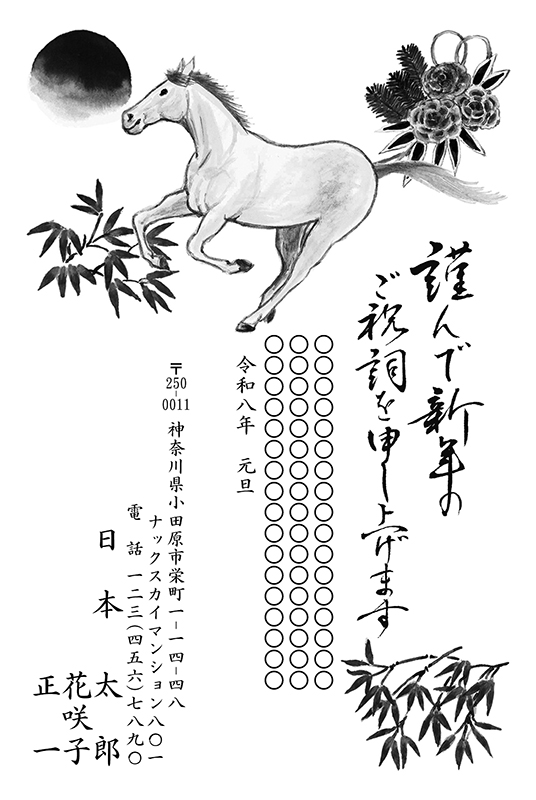 謹んで新年の
ご祝詞を申し上げます
〇〇〇〇〇〇〇〇〇〇〇〇〇〇〇〇〇
〇〇〇〇〇〇〇〇〇〇〇〇〇〇〇〇〇
〇〇〇〇〇〇〇〇〇〇〇〇〇〇〇〇〇
令和八年 元旦
〒250-0011 神奈川県小田原市栄町一-一四-四八
ナックスカイマンション八〇一
電話 一二三(四五六)七八九〇
日本 太郎
花咲子
正一